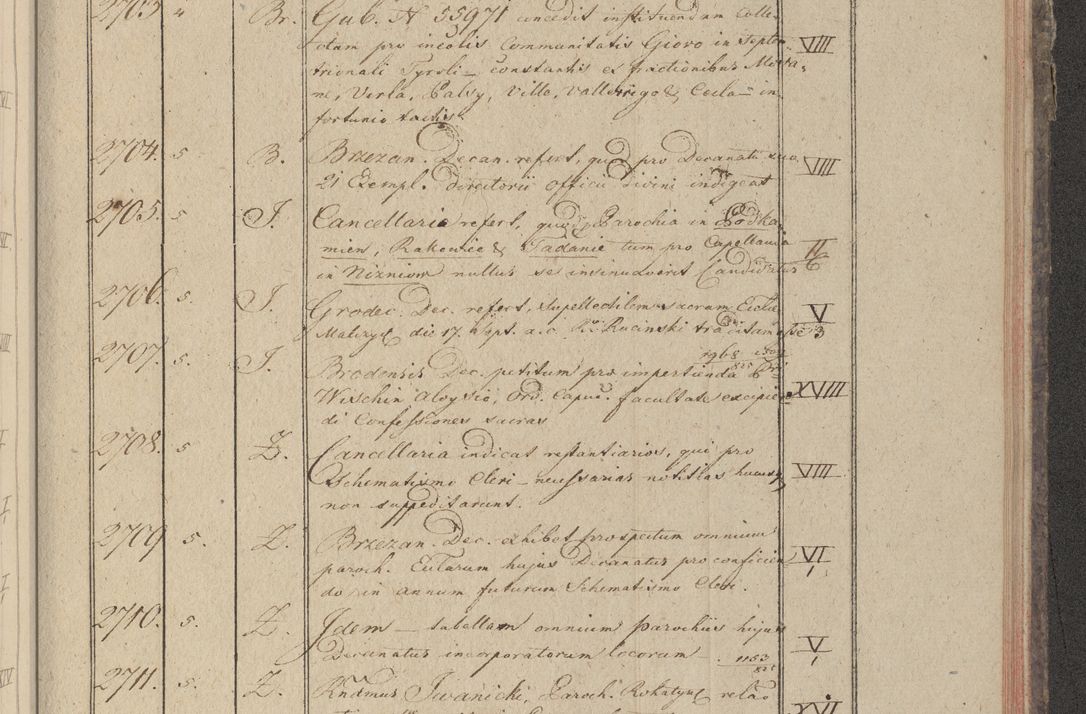 2703 4 Br. Gub. N 55971 concedit instituendam Colle-
ctam pro incolis Communitatis Giovo in Septen- VIII
trionali Tyroli – constantis ex fractionibus
Verla, Palsy, Ville, & Cecla in-
fortunio tactis.
2704. 5 B. Brzezan. Decan. refert, quod pro Decanatu suo VIII
21 Exempl. Directorii officii divini indigeat
2705. 5 J. Cancellaria refert, quod Parochia in Podka-
mien, Rakowice & Tadanie tum pro Capellania II
in Nizniow nullus se insinuaverit Candidatus 6
2706. 5. J. Grodec. Dec. refert, supellectilem sacram Eccl V
die 17. Sept. a.c. Rucinski traditam esse 3
2707. 5. J. Brodensis Dec. petitum pro impertienda 1968
825
Wischin Aloysio, Ord. Capuc. facultate excipien- XVIII
di Confessiones sacras
2708. 5 Z. Cancellaria indicat restantiarios, qui pro
Schematismo Cleri – necessarias notitias hucusq VIII
non suppeditarunt.
2709 5. Z. Brzezan. Dec. exhibet prospectum omnium
paroch. Eccl­arum hujus Decanatus pro conficien VI
do in annum futurum Schematismo Cleri.
2710. 5. Z. Idem – tabellam omnium Parochiis hujus
Decanatus incorporatorum locorum – 1153 V
825
2711. 5. Z. Iwanicki, Paroch. Rohatyn relao
XVI